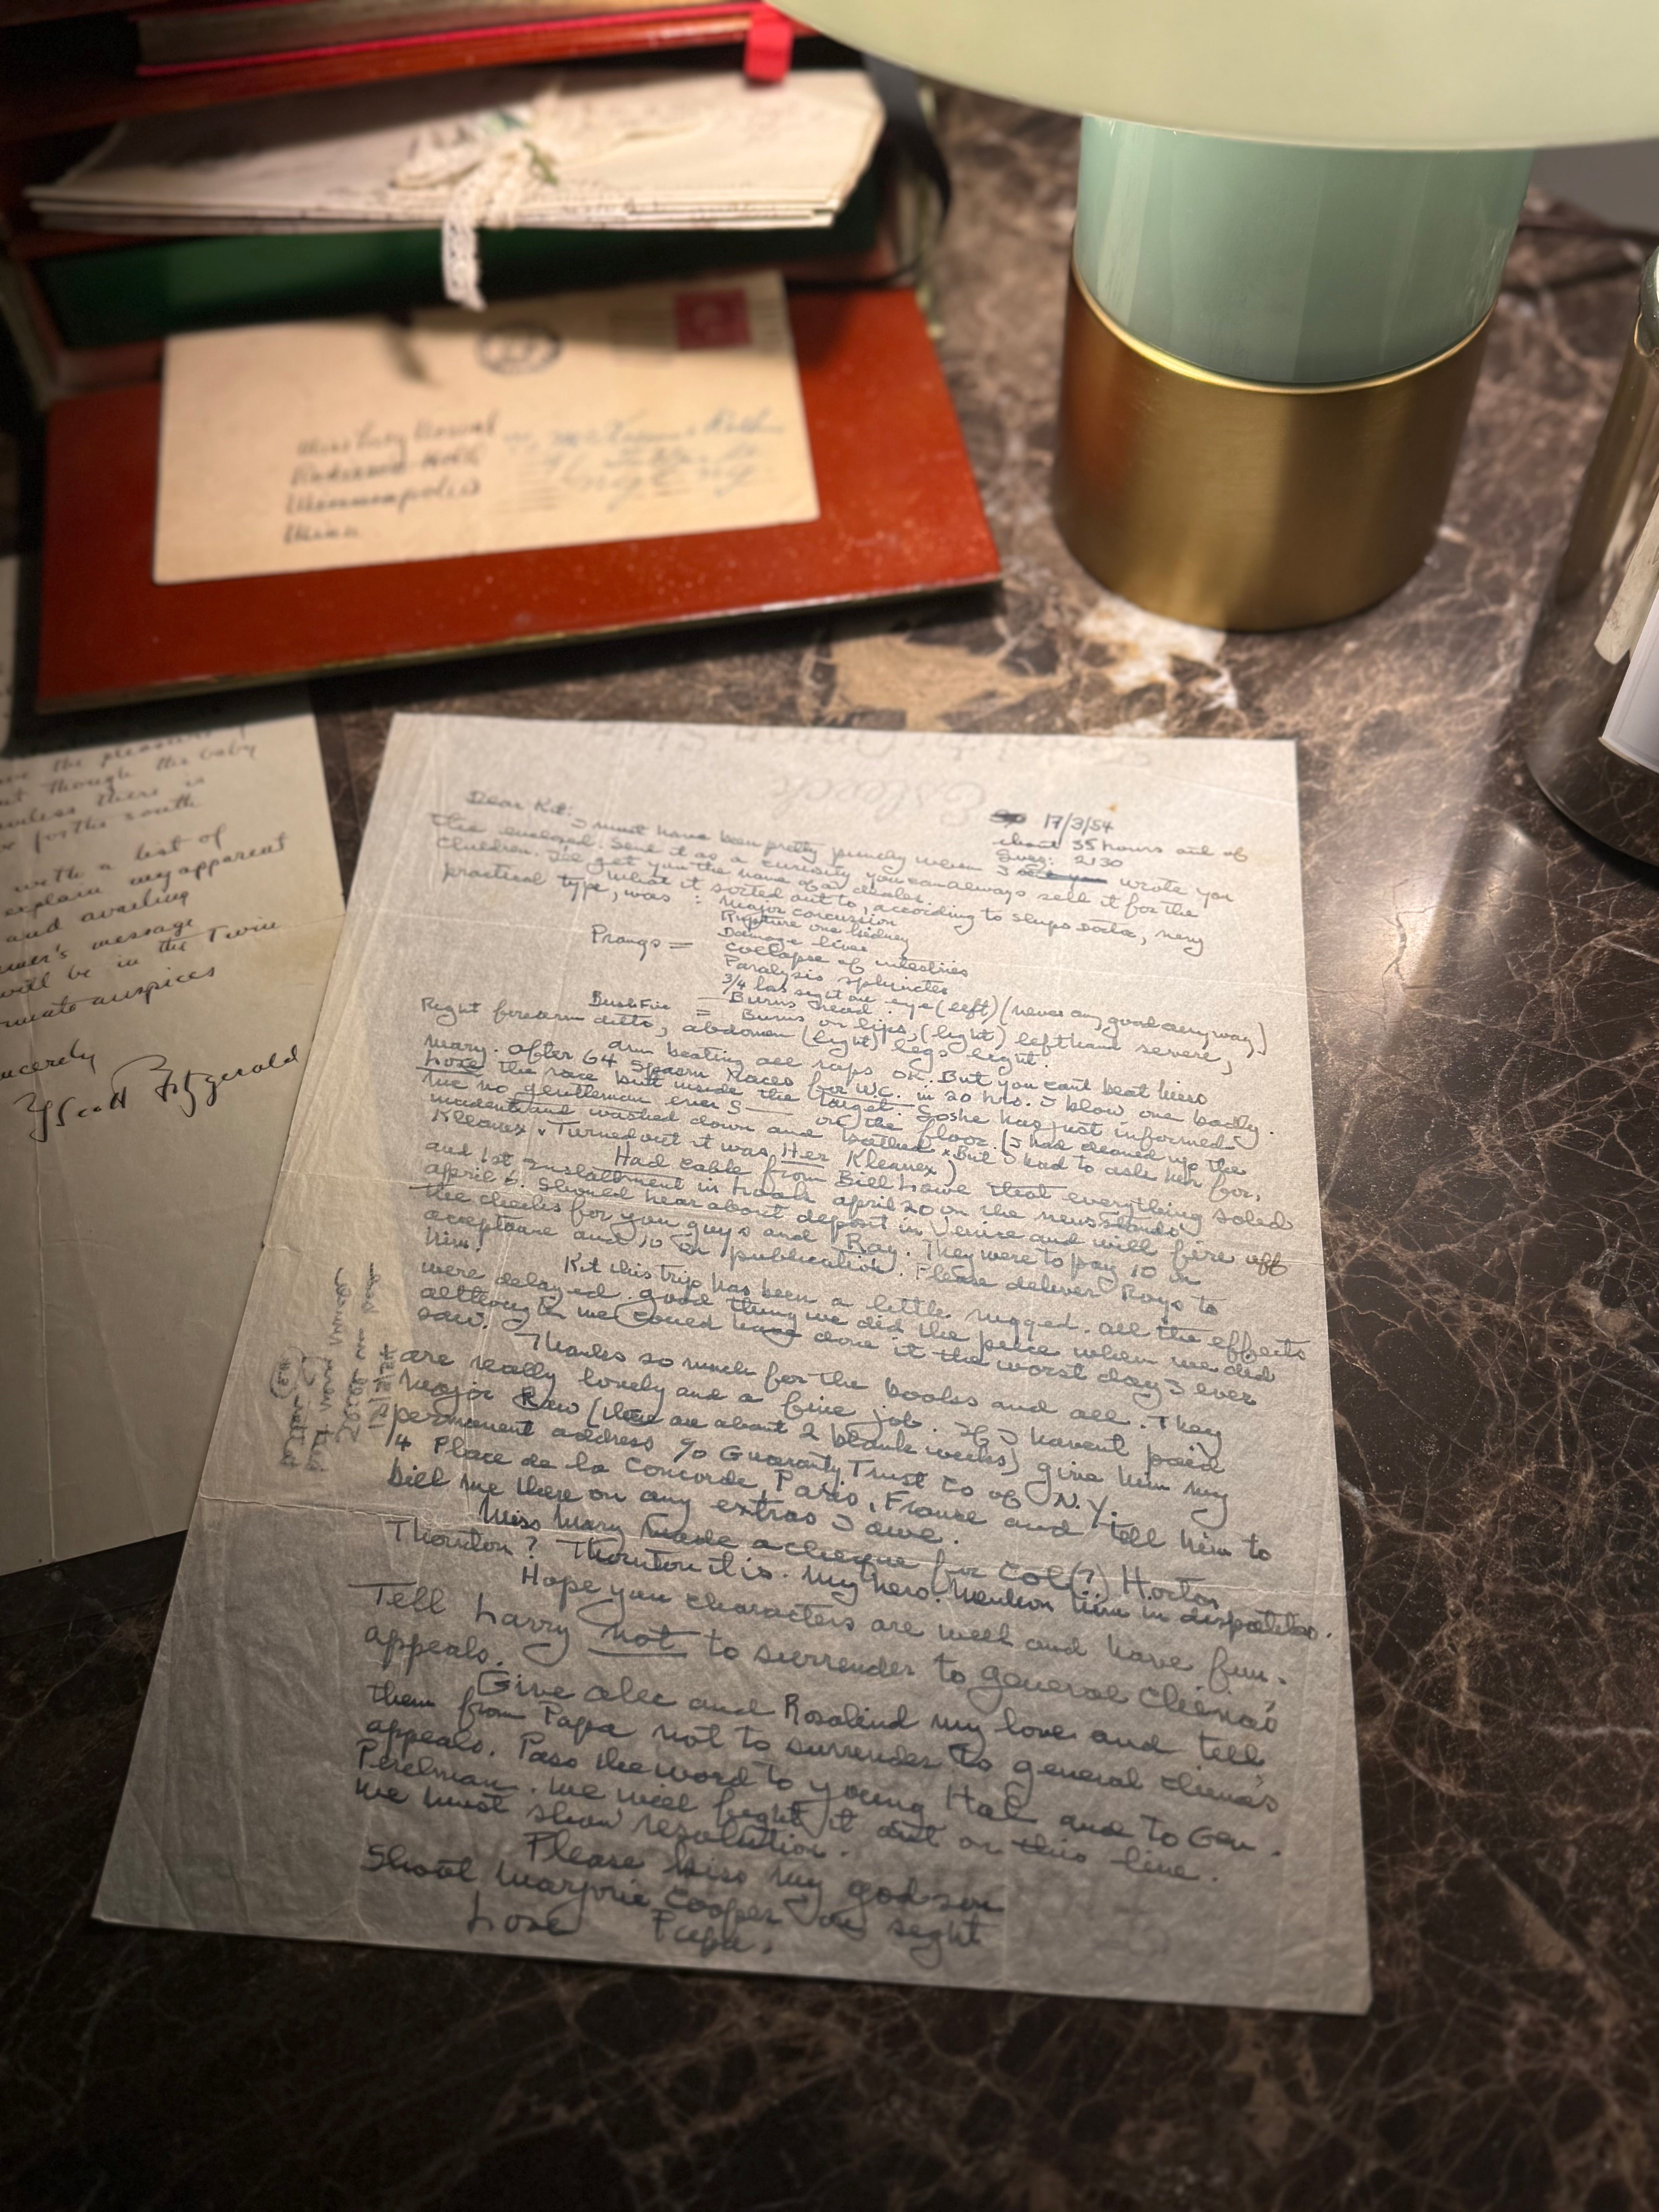 Miss Lucy Norval
Radisson Hotel
Minneapolis
Minn
ve the pleasure of
but though the baby
unless there is
for the south
with a list of
explain my apparent
and availing
mer's message
will be in the Twin
auspices
Sincerely
F Scott Fitzgerald
17/3/54
about 35 hours out of
Suez: 2130
Dear Kit:
I must have been pretty punchy when I wrote you
the enclosed. Send it as a curiosity you can always sell it for the
children. I'll get you the name of a dealer.
What it sorted out to, according to ships doctor, very
practical type, was: Major concussion
Rupture one kidney
Prangs = Damage liver
Collapse of intestines
Paralysis sphincter
3/4 loss sight one eye (left) (never any good anyway)
Bush Fire = Burns head.
Burns on lips, (light) left hand severe,
Right forearm ditto, abdomen (light) legs light.
arm beating all raps OK. But you cant beat Miss
Mary. After 64 Spasm Races for W.C. in 20 hrs. I blow one badly.
Lose the race but inside the target. So she has just informed
me no gentleman ever S— on the floor. (I had cleaned up the
incident and washed down and bathed. But I had to ask her for
Kleenex. Turned out it was Her Kleenex)
Had cable from Bill Lowe that everything soled
and 1st installment in Look April 20 on the newsstands
April 6. Should hear about deposit in Venice and will fire off
the checks for you guys and Ray. They were to pay 10 on
acceptance and 10 on publication. Please deliver Roys to
him.
Kit this trip has been a little rugged. All the effects
were delayed. Good thing we did the piece when we did
although we could have done it the worst day I ever
saw.
Thanks so much for the books and all. They
are really lovely and a fine job. If I havent paid
Major Raw (there are about 2 blank weeks) give him my
permanent address c/o Guaranty Trust Co of N.Y.
4 Place de la Concorde, Paris, France and tell him to
bill me there on any extras I owe.
Miss Mary made a cheque for Col(?) Horton
Thornton? Thornton it is. My hero. Mention him in dispatches.
Hope you characters are well and have fun.
Tell Harry not to surrender to General China's
appeals.
Give Alec and Rosalind my love and tell
them from Papa not to surrender to General China's
appeals. Pass the word to young Hal and to Gen.
Perelman. We will fight it out on this line.
We must show resolution.
Please kiss my godson
Shoot Marjorie Cooper on sight
Love Papa.